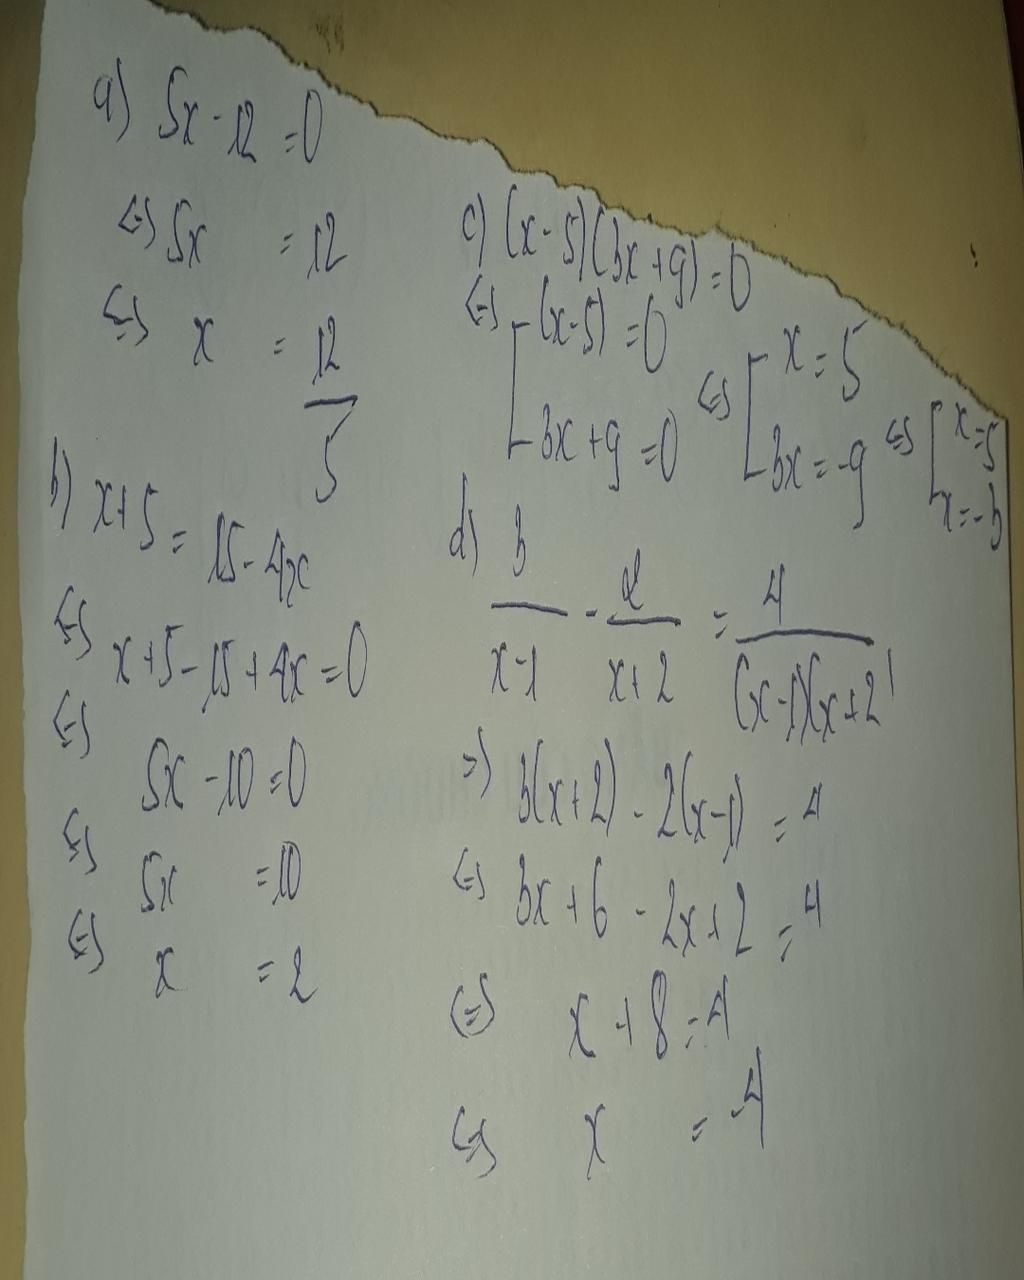 a) 5x - 12 = 0
<=> 5x = 12
<=> x = 12/5
b) x + 5 = 15 - 4x
<=> x + 5 - 15 + 4x = 0
<=> 5x - 10 = 0
<=> 5x = 10
<=> x = 2
c) (x - 5)(3x + 9) = 0
<=> [ (x - 5) = 0 <=> [ x = 5 <=> [ x = 5
3x + 9 = 0 3x = -9 x = -3
d) 3/(x - 1) - 2/(x + 2) = 4/((x - 1)(x + 2)
=> 3(x + 2) - 2(x - 1) = 4
<=> 3x + 6 - 2x + 2 = 4
<=> x + 8 = 4
<=> x = -4